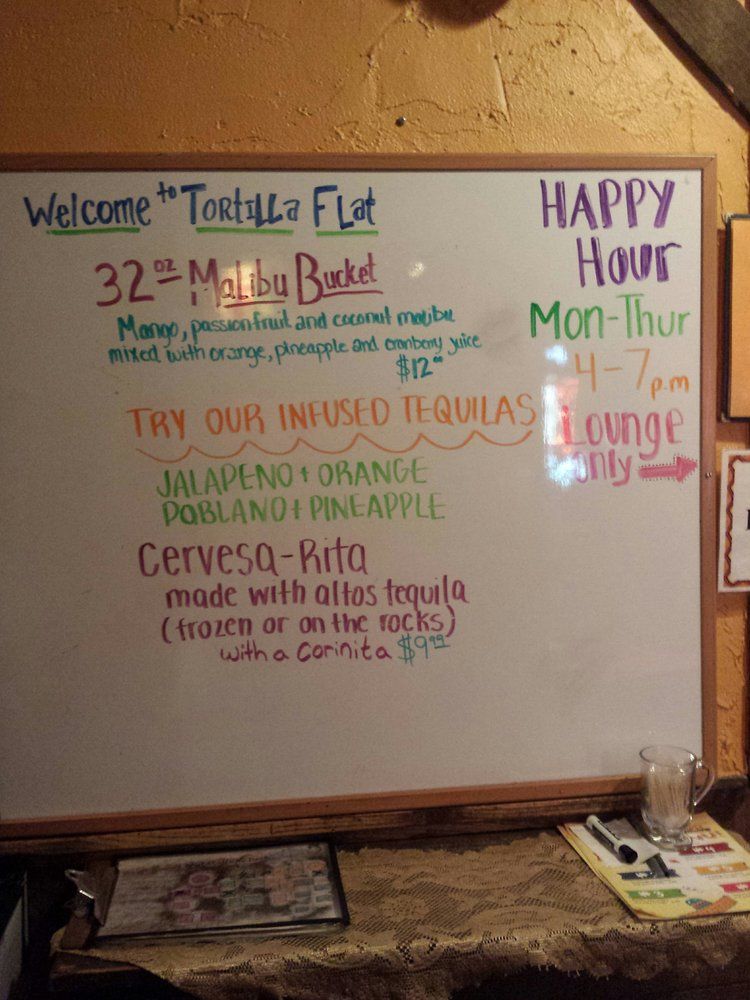 Welcome to Tortilla Flat
32oz Malibu Bucket
Mango, passionfruit and coconut malibu
mixed with orange, pineapple and cranberry juice
$12.00
TRY OUR INFUSED TEQUILAS
JALAPENO + ORANGE
POBLANO + PINEAPPLE
Cervesa-Rita
made with altos tequila
(frozen or on the rocks)
with a Corinita $9.99
HAPPY
Hour
Mon-Thur
4-7 p.m
Lounge
only